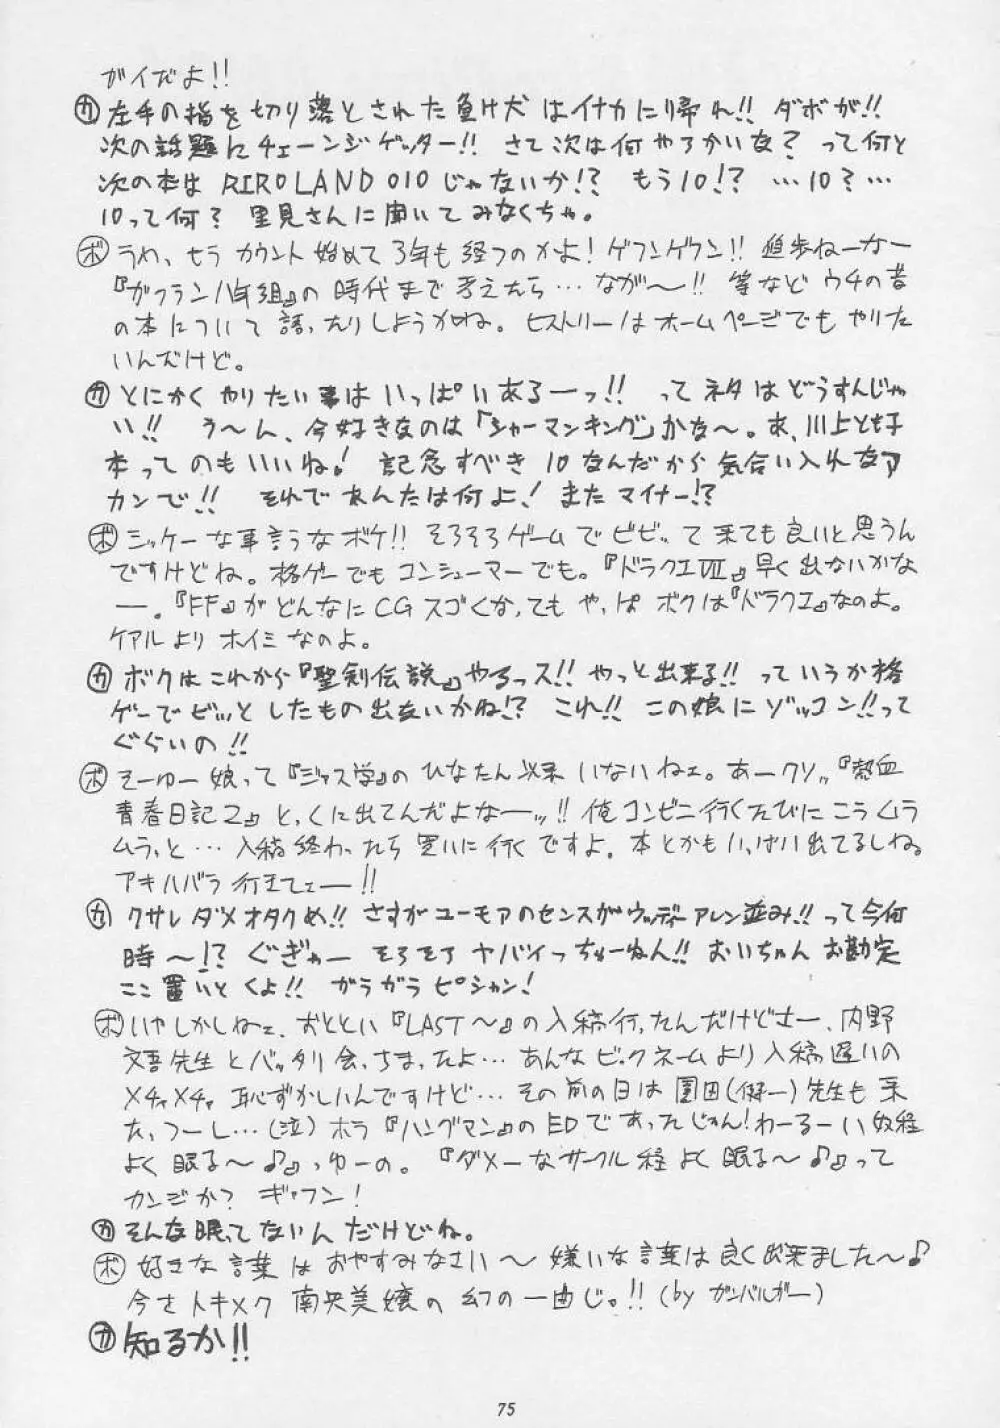 ガイだよ!!
㋕左手の指を切り落とされた負け犬はイナカに帰れ!! ダボが!!
次の話題にチェーンジゲッター!! さて次は何やろかいな? って何と
次の本は RIROLAND 010 じゃないか!? もう10!? …10?…
10って何? 里見さんに聞いてみなくちゃ。
㋭うわ、もうカウント始めて3年も経つのかよ! ゲフンゲフン!! 進歩ねーなー
『ガフラン八年組』の時代まで考えたら…なが〜!! 等など ウチの昔
の本について語ったりしようかね。ヒストリーはホームページでもやりた
いんだけど。
㋕とにかくやりたい事はいっぱいあるーっ!! ってネタはどうすんじゃ
い!! う〜ん、今好きなのは「シャーマンキング」かな〜。あ、川上とも子
本ってのもいいね! 記念すべき10なんだから気合い入れなア
カンで!! それであんたは何よ! またマイナー!?
㋭シッケーな事言うなボケ!! そろそろゲームでビビッて来ても良いと思うん
ですけどね。格ゲーでもコンシューマーでも。『ドラクエⅦ』早く出ないかな
ー。『FF』がどんなにCGスゴくなってもやっぱボクは『ドラクエ』なのよ。
ケアルよりホイミなのよ。
㋕ボクはこれから『聖剣伝説』やるっス!! やっと出来る!! っていうか格
ゲーでビッとしたもの出ないかね!? これ!! この娘にゾッコン!!って
ぐらいの!!
㋭そーゆー娘って『ジャス学』のひなたん以来いないねェ。あークソッ『熱血
青春日記2』とっくに出てんだよなーッ!! 俺コンビニ行くたびにこうムラ
ムラっと…入稿終わったら買いに行くですよ。本とかもいっぱい出てるしね。
アキハバラ行きてェー!!
㋕クサレダメオタクめ!! さすがユーモアのセンスがウッディ・アレン並み!!って今何
時〜!? ぐぎゃー そろそろヤバイっちゅーねん!! おいちゃんお勘定
ここ置いとくよ!! ガラガラピシャン!
㋭いやしかしねェ、おととい『LAST〜』の入稿行ったんだけどさー、内野
文吾先生とバッタリ会っちまったよ…あんなビックネームより入稿遅いの
メチャメチャ恥ずかしいんですけど…その前の日は園田(健一)先生も来
たっつーし…(泣)ホラ『ハングマン』のEDであったじゃん!わーるーい奴程
よく眠る〜♪』っゆーの。『ダメーなサークル程よく眠る〜♪』って
カンジか? ギャフン!
㋕そんな眠ってないんだけどね。
㋭好きな言葉はおやすみなさい〜 嫌いな言葉は良く出来ました〜♪
今さトキメク 南央美嬢の幻の一曲じゃ!!(by ガンバルガー)
㋕知るか!!
75